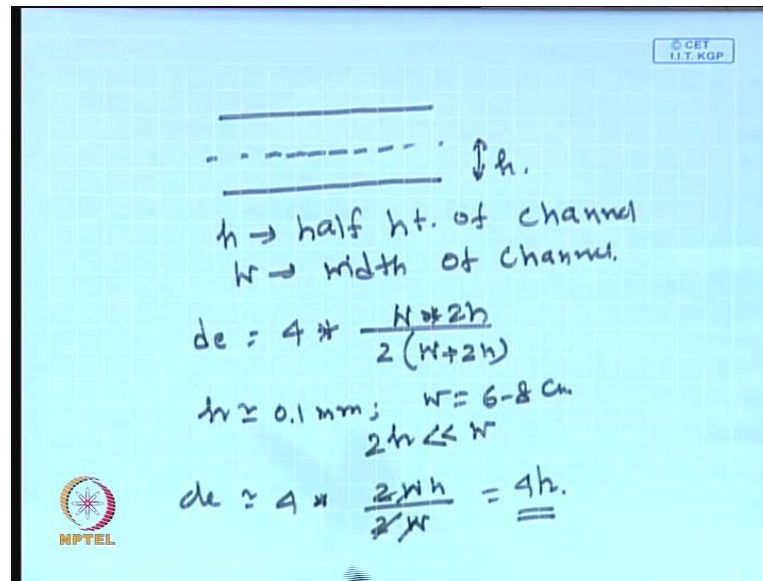 © CET
I.I.T. KGP
h.
h → half ht. of channel
W → width of channel.
de = 4 * W * 2h / 2 (W+2h)
h ≃ 0.1 mm; W = 6-8 Cm.
2h << W
de ≃ 4 * 2Wh / 2W = 4h.
NPTEL